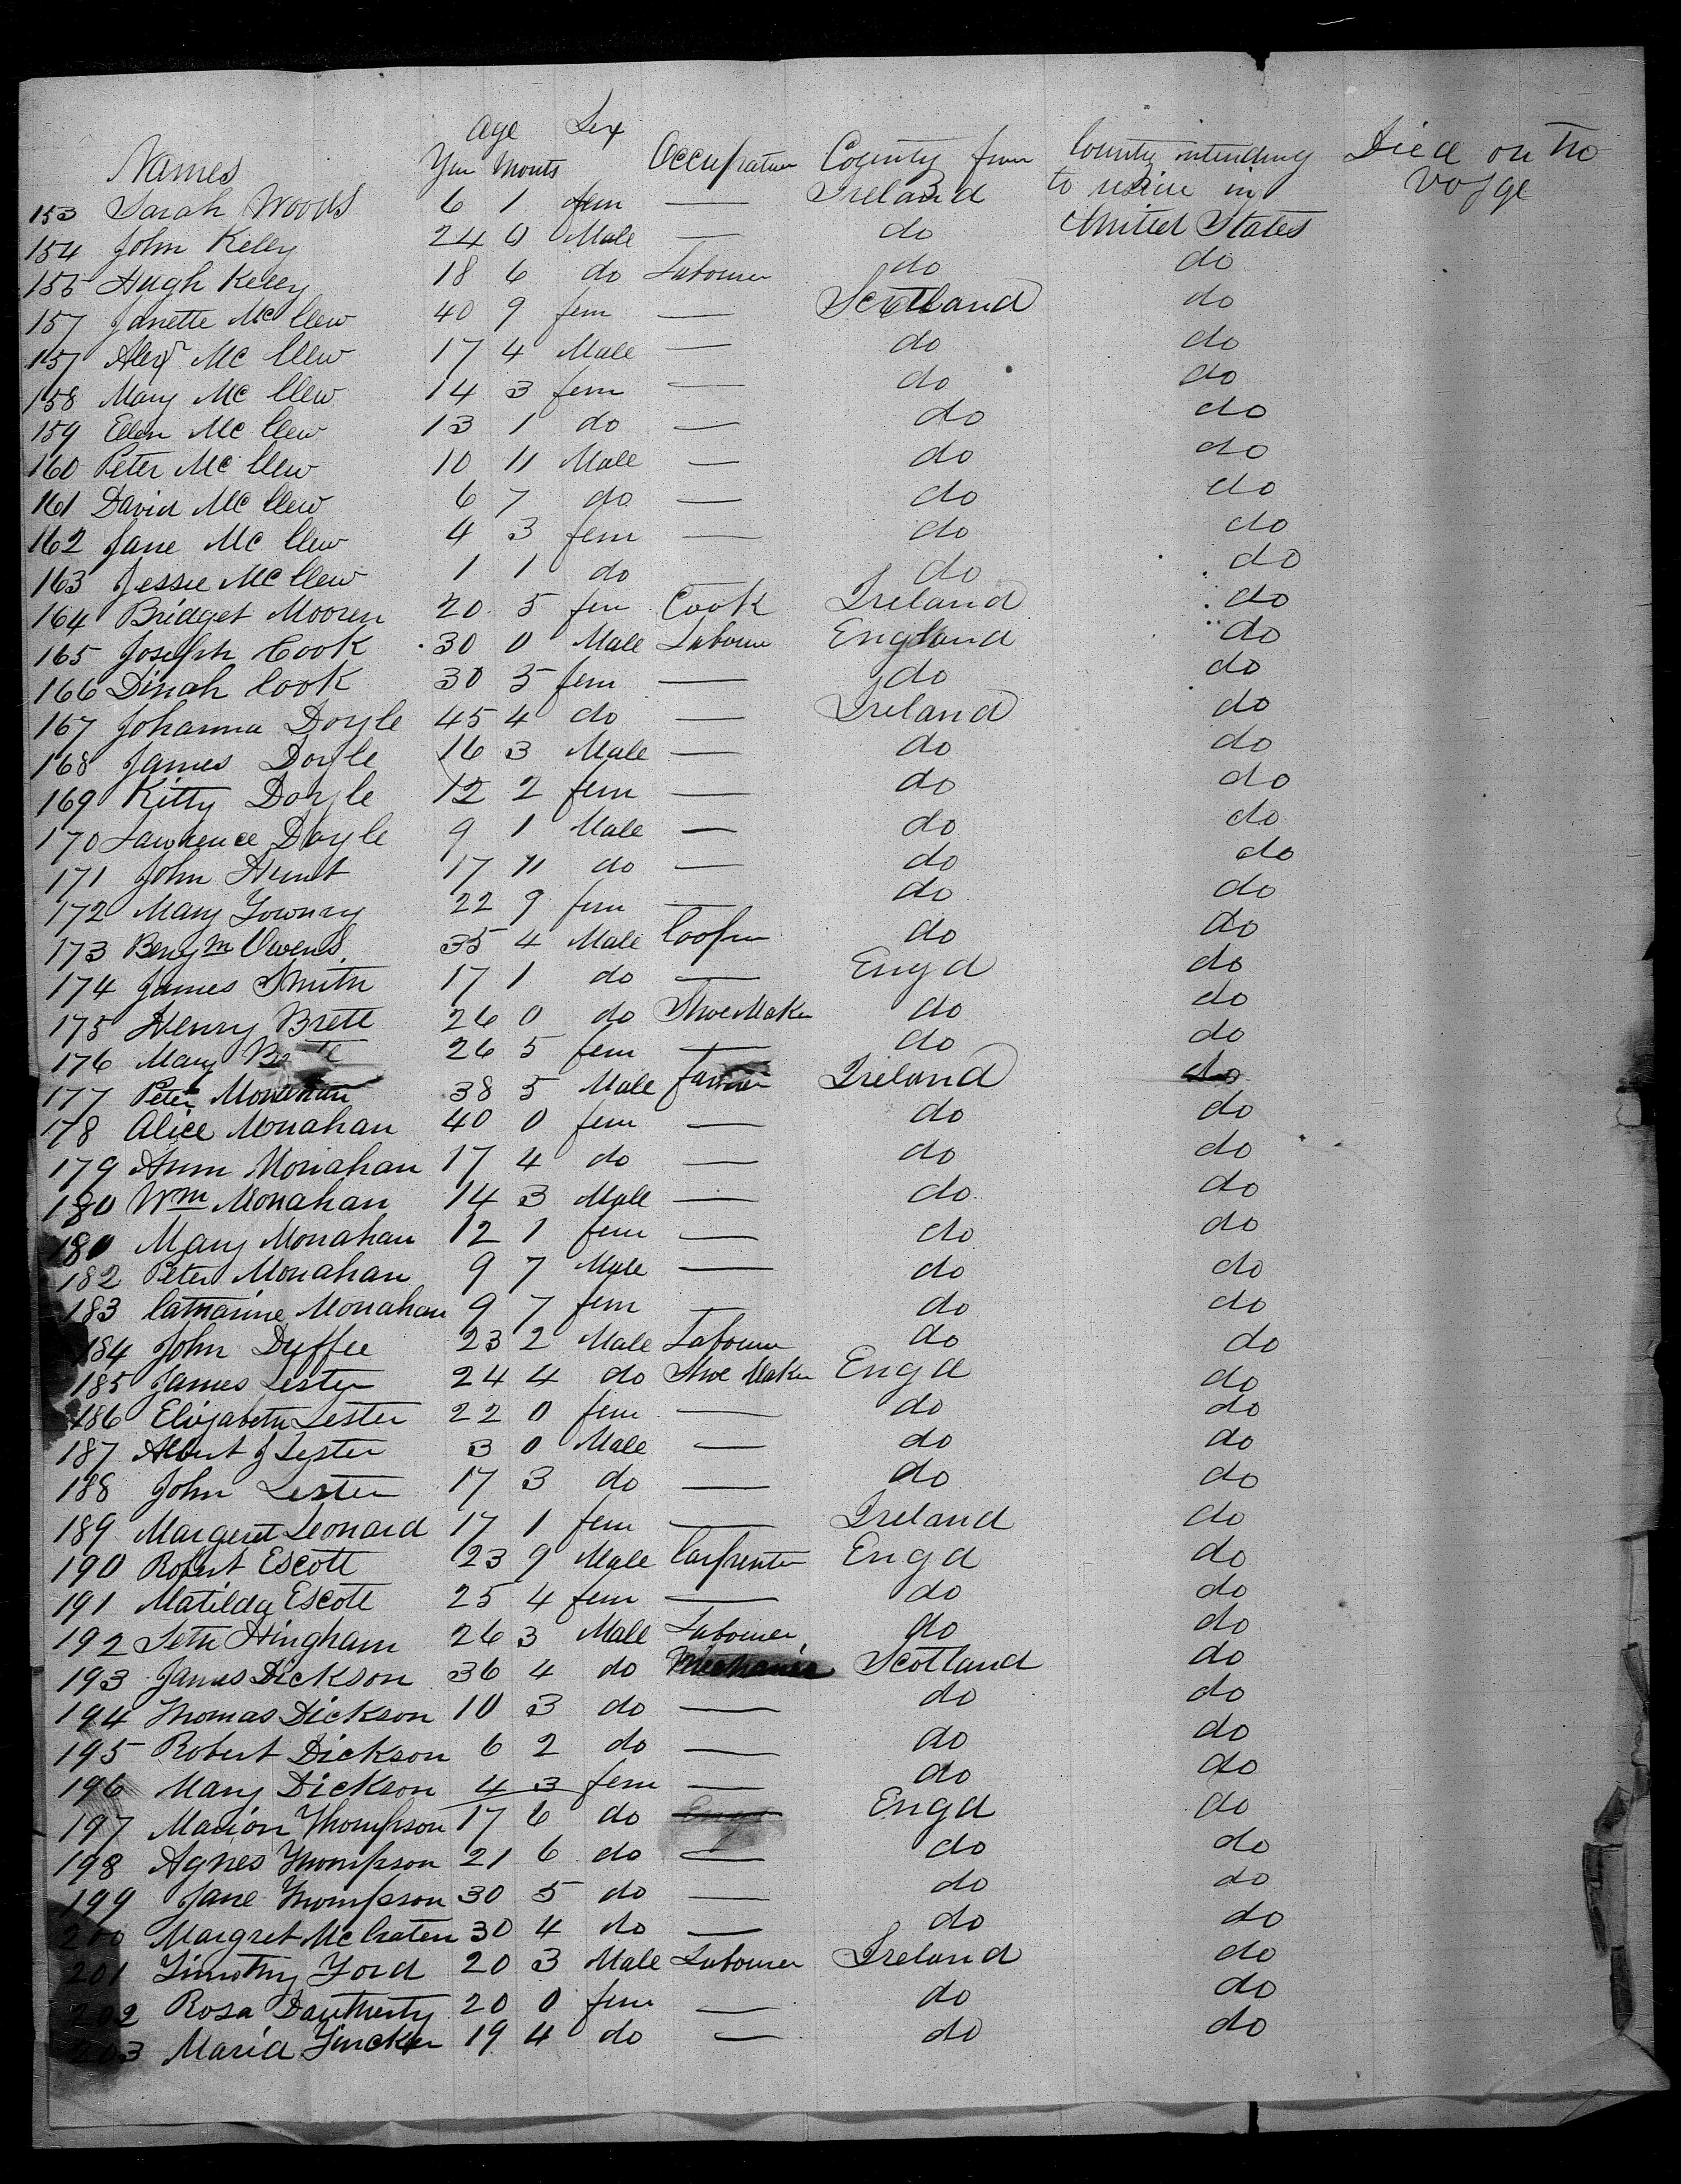 Age Sex
Names Yrs Monts Occupation County from County intending to reside in Died on the Voyge
153 Sarah Woods 6 1 fem — Ireland United States
154 John Kelly 24 0 Male — do
155 Hugh Kelly 18 6 do Labourer do do
157 Janette Mc Clew 40 9 fem — Scotland do
157 Alexr Mc Clew 17 4 Male — do do
158 Mary Mc Clew 14 3 fem — do do
159 Ellen Mc Clew 13 1 do — do do
160 Peter Mc Clew 10 11 Male — do do
161 David Mc Clew 6 7 do — do do
162 Jane Mc Clew 4 3 fem — do do
163 Jessie Mc Clew 1 1 do — do do
164 Bridget Mooren 20 5 fem Cook Ireland do
165 Joseph Cook 30 0 Male Labourer England do
166 Dinah Cook 30 5 fem — do do
167 Johanna Doyle 45 4 do — Ireland do
168 James Doyle 16 3 Male — do do
169 Kitty Doyle 12 2 fem — do do
170 Lawrence Doyle 9 1 Male — do do
171 John Hunt 17 11 do — do do
172 Mary 22 9 fem — do do
173 Benjm Owens 35 4 Male Cooper do do
174 James Smith 17 1 do — Engd do
175 Henry Brett 26 0 do Shoe Maker do do
176 Mary 26 5 fem — do do
177 Peter Monahan 38 5 Male farmer Ireland do
178 Alice Monahan 40 0 fem — do do
179 Ann Monahan 17 4 do — do do
180 Wm Monahan 14 3 Male — do do
180 Mary Monahan 12 1 fem — do do
182 Peter Monahan 9 7 Male — do do
183 Catharine Monahan 9 7 fem — do do
184 John Duffee 23 2 Male Labourer do do
185 James Lester 24 4 do Shoe Maker Engd do
186 Elizabeth Lester 22 0 fem — do do
187 Albert J Lester 3 0 Male — do do
188 John Lester 17 3 do — do do
189 Margeret Leonard 17 1 fem — Ireland do
190 Robert Escott 23 9 Male Carpenter Engd do
191 Matilda Escott 25 4 fem — do do
192 Seth Hingham 26 3 Male Labourer do do
193 James Dickson 36 4 do Mechanic Scotland do
194 Thomas Dickson 10 3 do — do do
195 Robert Dickson 6 2 do — do do
196 Mary Dickson 4 3 fem — do do
197 Marion Thompson 17 6 do — Engd do
198 Agnes Thompson 21 6 do — do do
199 Jane Thompson 30 5 do — do do
200 Margret 30 4 do — do do
201 Timothy Ford 20 3 Male Labourer Ireland do
202 Rosa Dautherty 20 0 fem — do do
203 Maria 19 4 do — do do